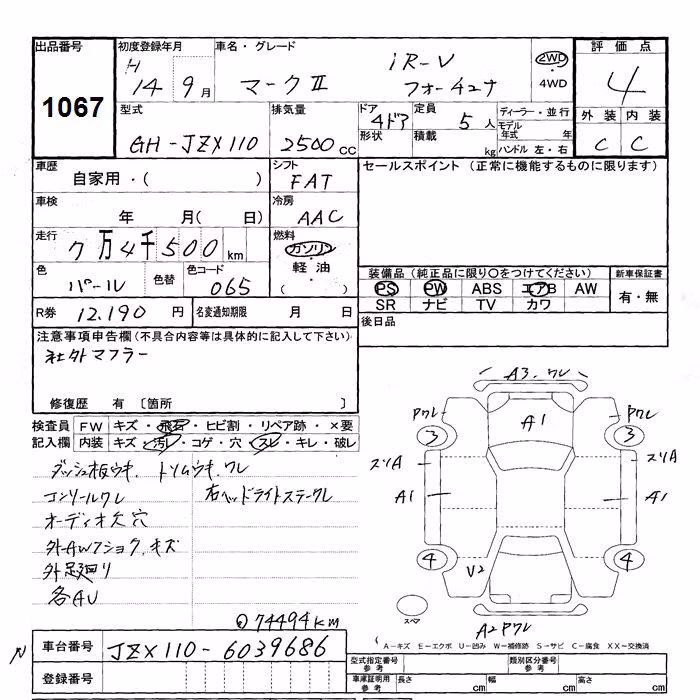 出品番号
1067
初度登録年月
H 14年 9月
車名・グレード
マークⅡ
iR-V
フォーチュナ
2WD
4WD
評価点
4
外装 内装
C C
型式
GH-JZX110
排気量
2500 CC
ドア
4ドア
形状
定員
5人
積載
kg
ディーラー・並行
モデル年式 年
ハンドル 左・右
車歴
自家用・( )
シフト
FAT
セールスポイント (正常に機能するものに限ります)
車検
年 月( 日)
冷房
AAC
走行
7万4千500km
燃料
ガソリン
軽油
( )
色
パール
色替
色コード
065
装備品 (純正品に限り〇をつけてください)
新車保証書
PS PW ABS エアB AW
有・無
SR ナビ TV カワ
R券 12.190 円
名変通知期限 月 日
後日品
注意事項申告欄(不具合内容等は具体的に記入して下さい)
社外マフラー
修復歴 有 〔箇所 〕
検査員 FW キズ・飛石・ヒビ割・リペア跡・×要
記入欄 内装 キズ・汚れ・コゲ・穴・スレ・キレ・破レ
ダッシュ板ウキ. トリムウキ.ワレ
コンソールワレ 右ヘッドライトステーワレ
オーディオ欠穴
外AWフショク.キズ
外足廻り
各AU
74494km
A3.ワレ
Pワレ Pワレ
A1
3 3
スリA スリA
A1 A1
4 4
V2
スペア
A2Pワレ
A-キズ E-エクボ U-凹み W-補修跡 S-サビ C-腐食 XX-交換済
N
車台番号 JZX110-6039686
登録番号
型式指定番号 参考
類別区分番号 参考
車庫証明用 参考
長さ cm
幅 cm
高さ cm